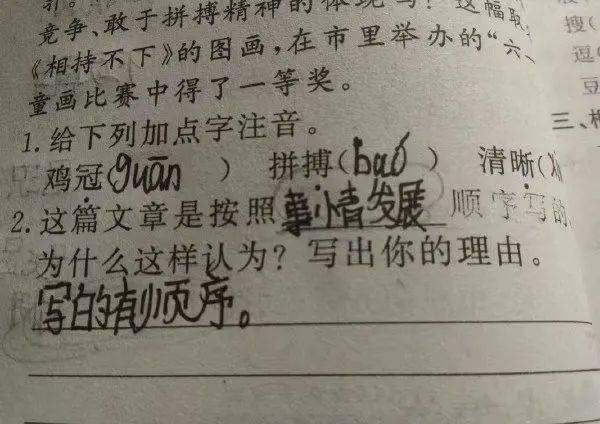 竞争、敢于拼搏精神的体现吗？这幅取
《相持不下》的图画，在市里举办的“六、
童画比赛中得了一等奖。
1.给下列加点字注音。
鸡冠(guān) 拼搏(baó) 清晰(
2.这篇文章是按照事情发展顺序写的
为什么这样认为？写出你的理由。
写的有顺序。
搜(
逗(
豆
三、